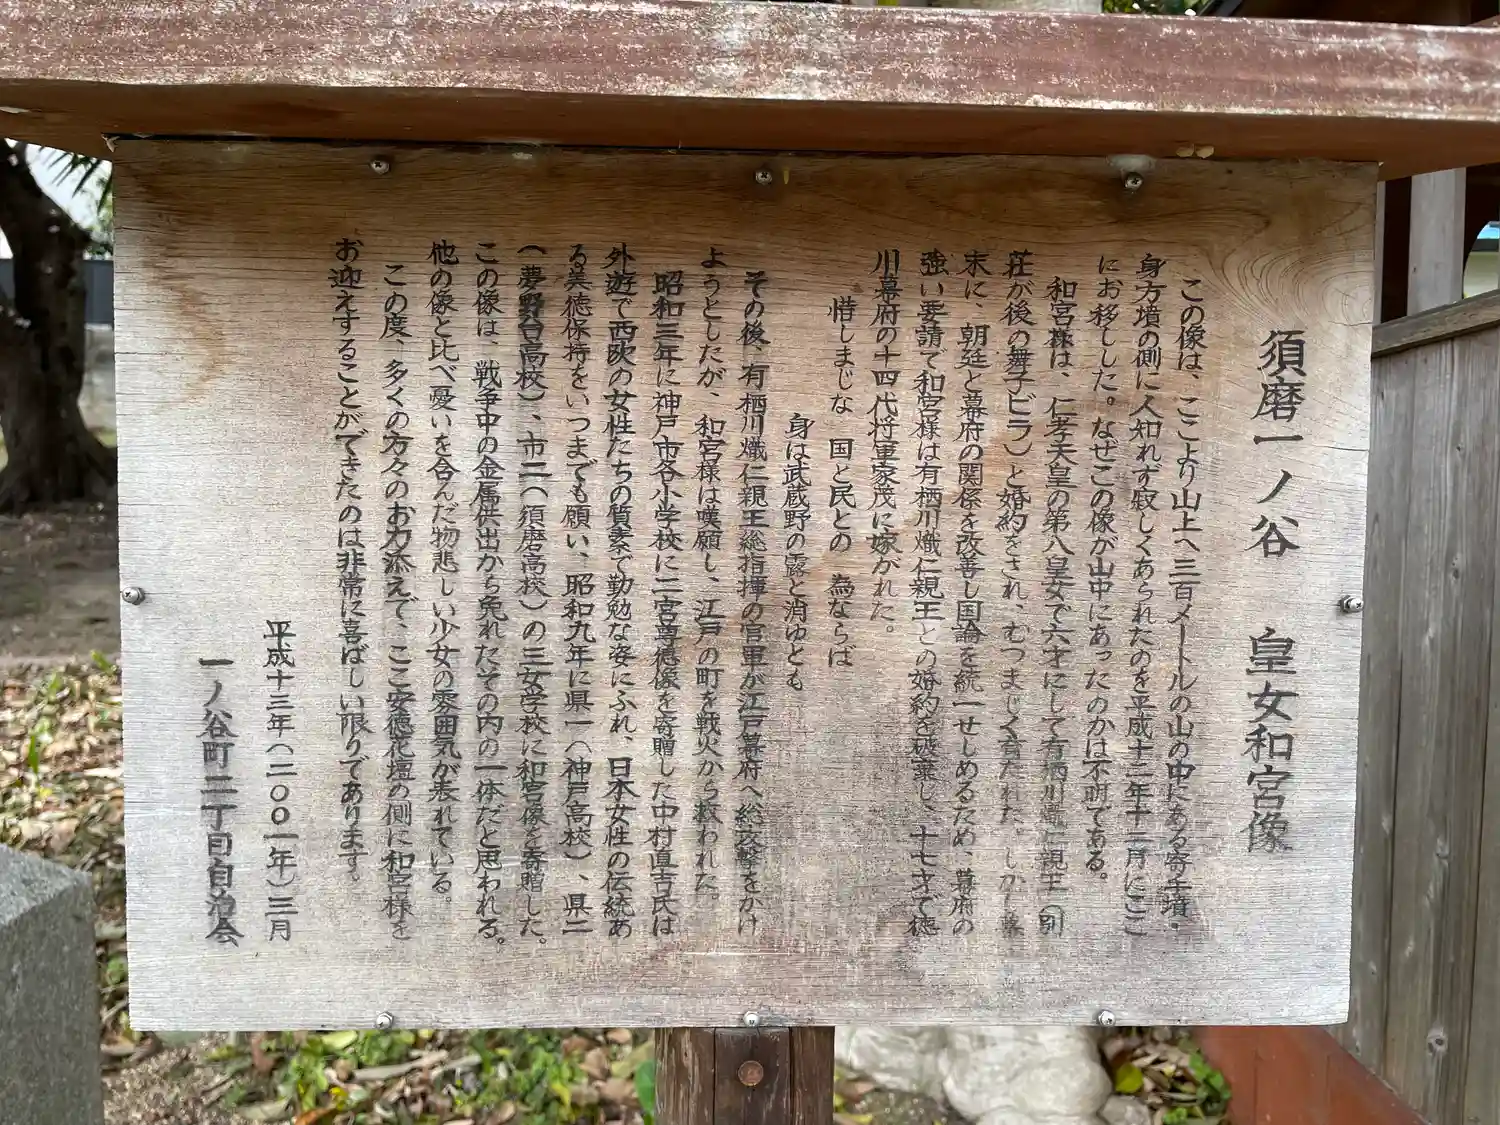 須磨一ノ谷　皇女和宮像
この像は、ここより山上へ三百メートルの山の中にある寄手墳・
身方墳の側に人知れず寂しくあられたのを平成十二年十二月にここ
にお移しした。なぜこの像が山中にあったのかは不明である。
和宮様は、仁孝天皇の第八皇女で六才にして有栖川熾仁親王（別
荘が後の舞子ビラ）と婚約をされ、むつまじく育たれた。しかし幕
末に、朝廷と幕府の関係を改善し国論を統一せしめるため、幕府の
強い要請で和宮様は有栖川熾仁親王との婚約を破棄し、十七才で徳
川幕府の十四代将軍家茂に嫁がれた。
惜しまじな　国と民との　為ならば
身は武蔵野の露と消ゆとも
その後、有栖川熾仁親王総指揮の官軍が江戸幕府へ総攻撃をかけ
ようとしたが、和宮様は嘆願し、江戸の町を戦火から救われた。
昭和三年に神戸市各小学校に二宮尊徳像を寄贈した中村直吉氏は
外遊で西欧の女性たちの質素で勤勉な姿にふれ、日本女性の伝統あ
る美徳保持をいつまでも願い、昭和九年に県一（神戸高校）、県二
（夢野台高校）、市二（須磨高校）の三女学校に和宮像を寄贈した。
この像は、戦争中の金属供出から免れたその内の一体だと思われる。
他の像と比べ憂いを含んだ物悲しい少女の雰囲気が表れている。
この度、多くの方々のお力添えで、ここ安徳花壇の側に和宮様を
お迎えすることができたのは非常に喜ばしい限りであります。
平成十三年（二００一年）三月
一ノ谷町二丁目自治会